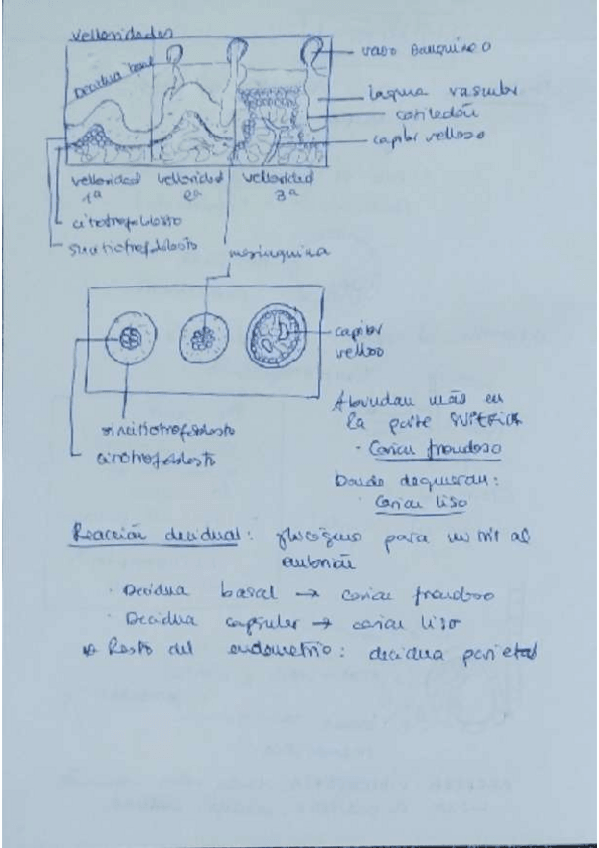 vellosidades
Decidua basal
vaso sanguíneo
laguna vascular
cotiledón
capilar velloso
vellosidad 1ª
vellosidad 2ª
vellosidad 3ª
citotrofoblasto
sincitiotrofoblasto
mesénquima
capilar
velloso
sincitiotrofoblasto
citotrofoblasto
Abundan más en
la parte
· Corion frondoso
Donde degeneran:
Corion liso
Reacción decidual: glucógeno para nutrir al
embrión
· Decidua basal → corion frondoso
· Decidua capsular → corion liso
Resto del endometrio: decidua parietal